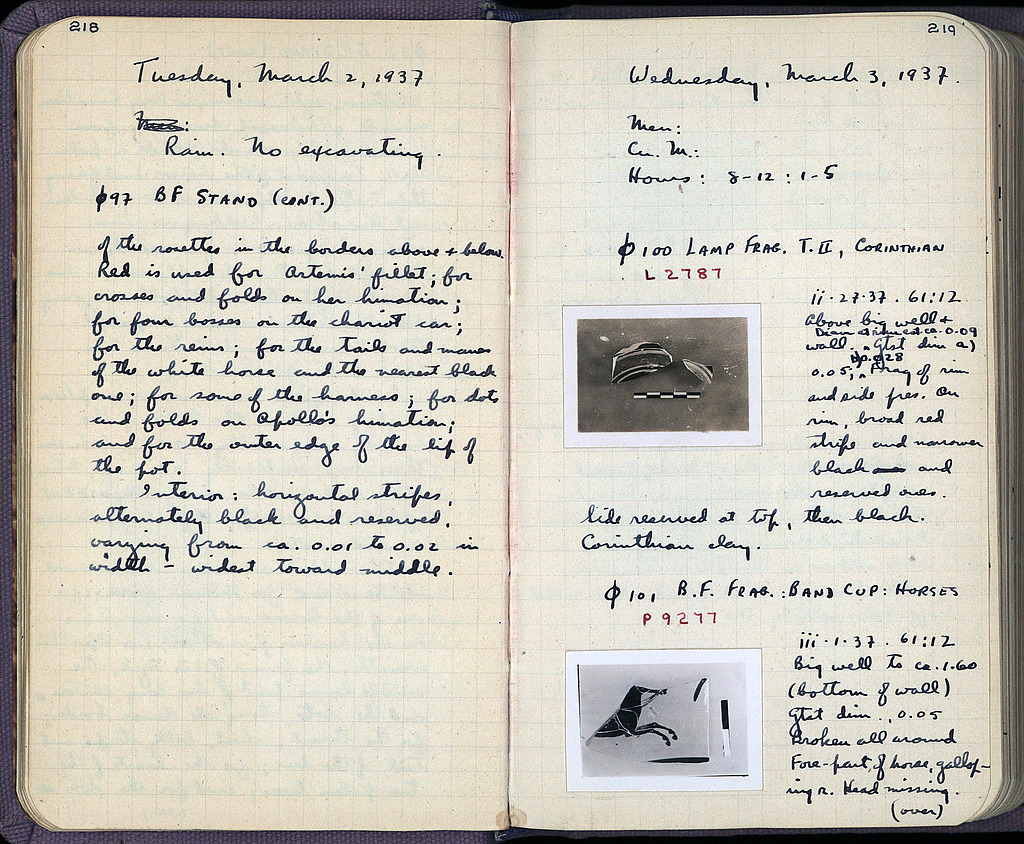 218
Tuesday, March 2, 1937
Rain. No excavating.
ϕ97 BF STAND (CONT.)
of the rosettes in the borders above + below.
Red is used for Artemis' fillet; for
crosses and folds on her himation;
for four bosses on the chariot car;
for the reins; for the tails and manes
of the white horse and the nearest black
one; for some of the harness; for dots
and folds on Apollo's himation;
and for the outer edge of the lip of
the pot.
Interior: horizontal stripes,
alternately black and reserved,
varying from ca. 0.01 to 0.02 in
width – widest toward middle.
219
Wednesday, March 3, 1937.
Men:
Cu. M.:
Hours: 8-12 : 1-5
ϕ100 LAMP FRAG. T. II, CORINTHIAN
L 2787
ii·27·37. 61:12
Above big well +
Diam at rim est ca. 0.09
wall. Gtst dim a)
0.05; Frag of rim
and side pres. On
rim, broad red
stripe and narrower
black and
reserved ones.
Side reserved at top, then black.
Corinthian clay.
ϕ101 B.F. FRAG.: BAND CUP: HORSES
P 9277
iii·1·37. 61:12
Big well to ca. 1.60
(bottom of wall)
Gtst dim., 0.05
Broken all around
Fore-part of horse, gallop-
ing r. Head missing.
(over)